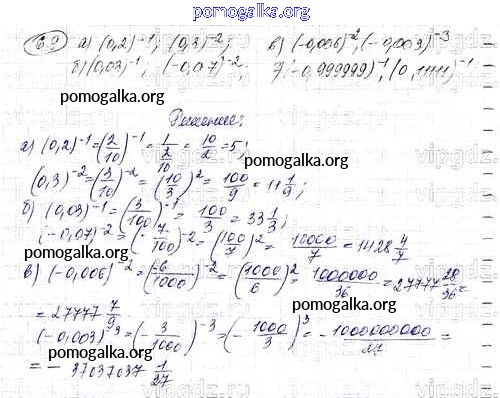 pomogalka.org
6.9 а) (0,2)⁻¹; (0,3)⁻²; в) (-0,006)⁻²; (-0,003)⁻³
б) (0,03)⁻¹; (-0,07)⁻²; (-0,999999)⁻¹; (0,1111)⁻¹
pomogalka.org
Решение:
а) (0,2)⁻¹ = (2/10)⁻¹ = 1/(2/10) = 10/2 = 5;
pomogalka.org
(0,3)⁻² = (3/10)⁻² = (10/3)² = 100/9 = 11 1/9;
pomogalka.org
б) (0,03)⁻¹ = (3/100)⁻¹ = 100/3 = 33 1/3;
(-0,07)⁻² = (-7/100)⁻² = (100/7)² = 10000/7 = 1428 4/7
pomogalka.org
в) (-0,006)⁻² = (-6/1000)⁻² = (1000/6)² = 1000000/36 = 27777 28/36 =
pomogalka.org
= 27777 7/9
(-0,003)⁻³ = (-3/1000)⁻³ = (-1000/3)³ = -1000000000/27 =
pomogalka.org
pomogalka.org
= -37037037 1/27